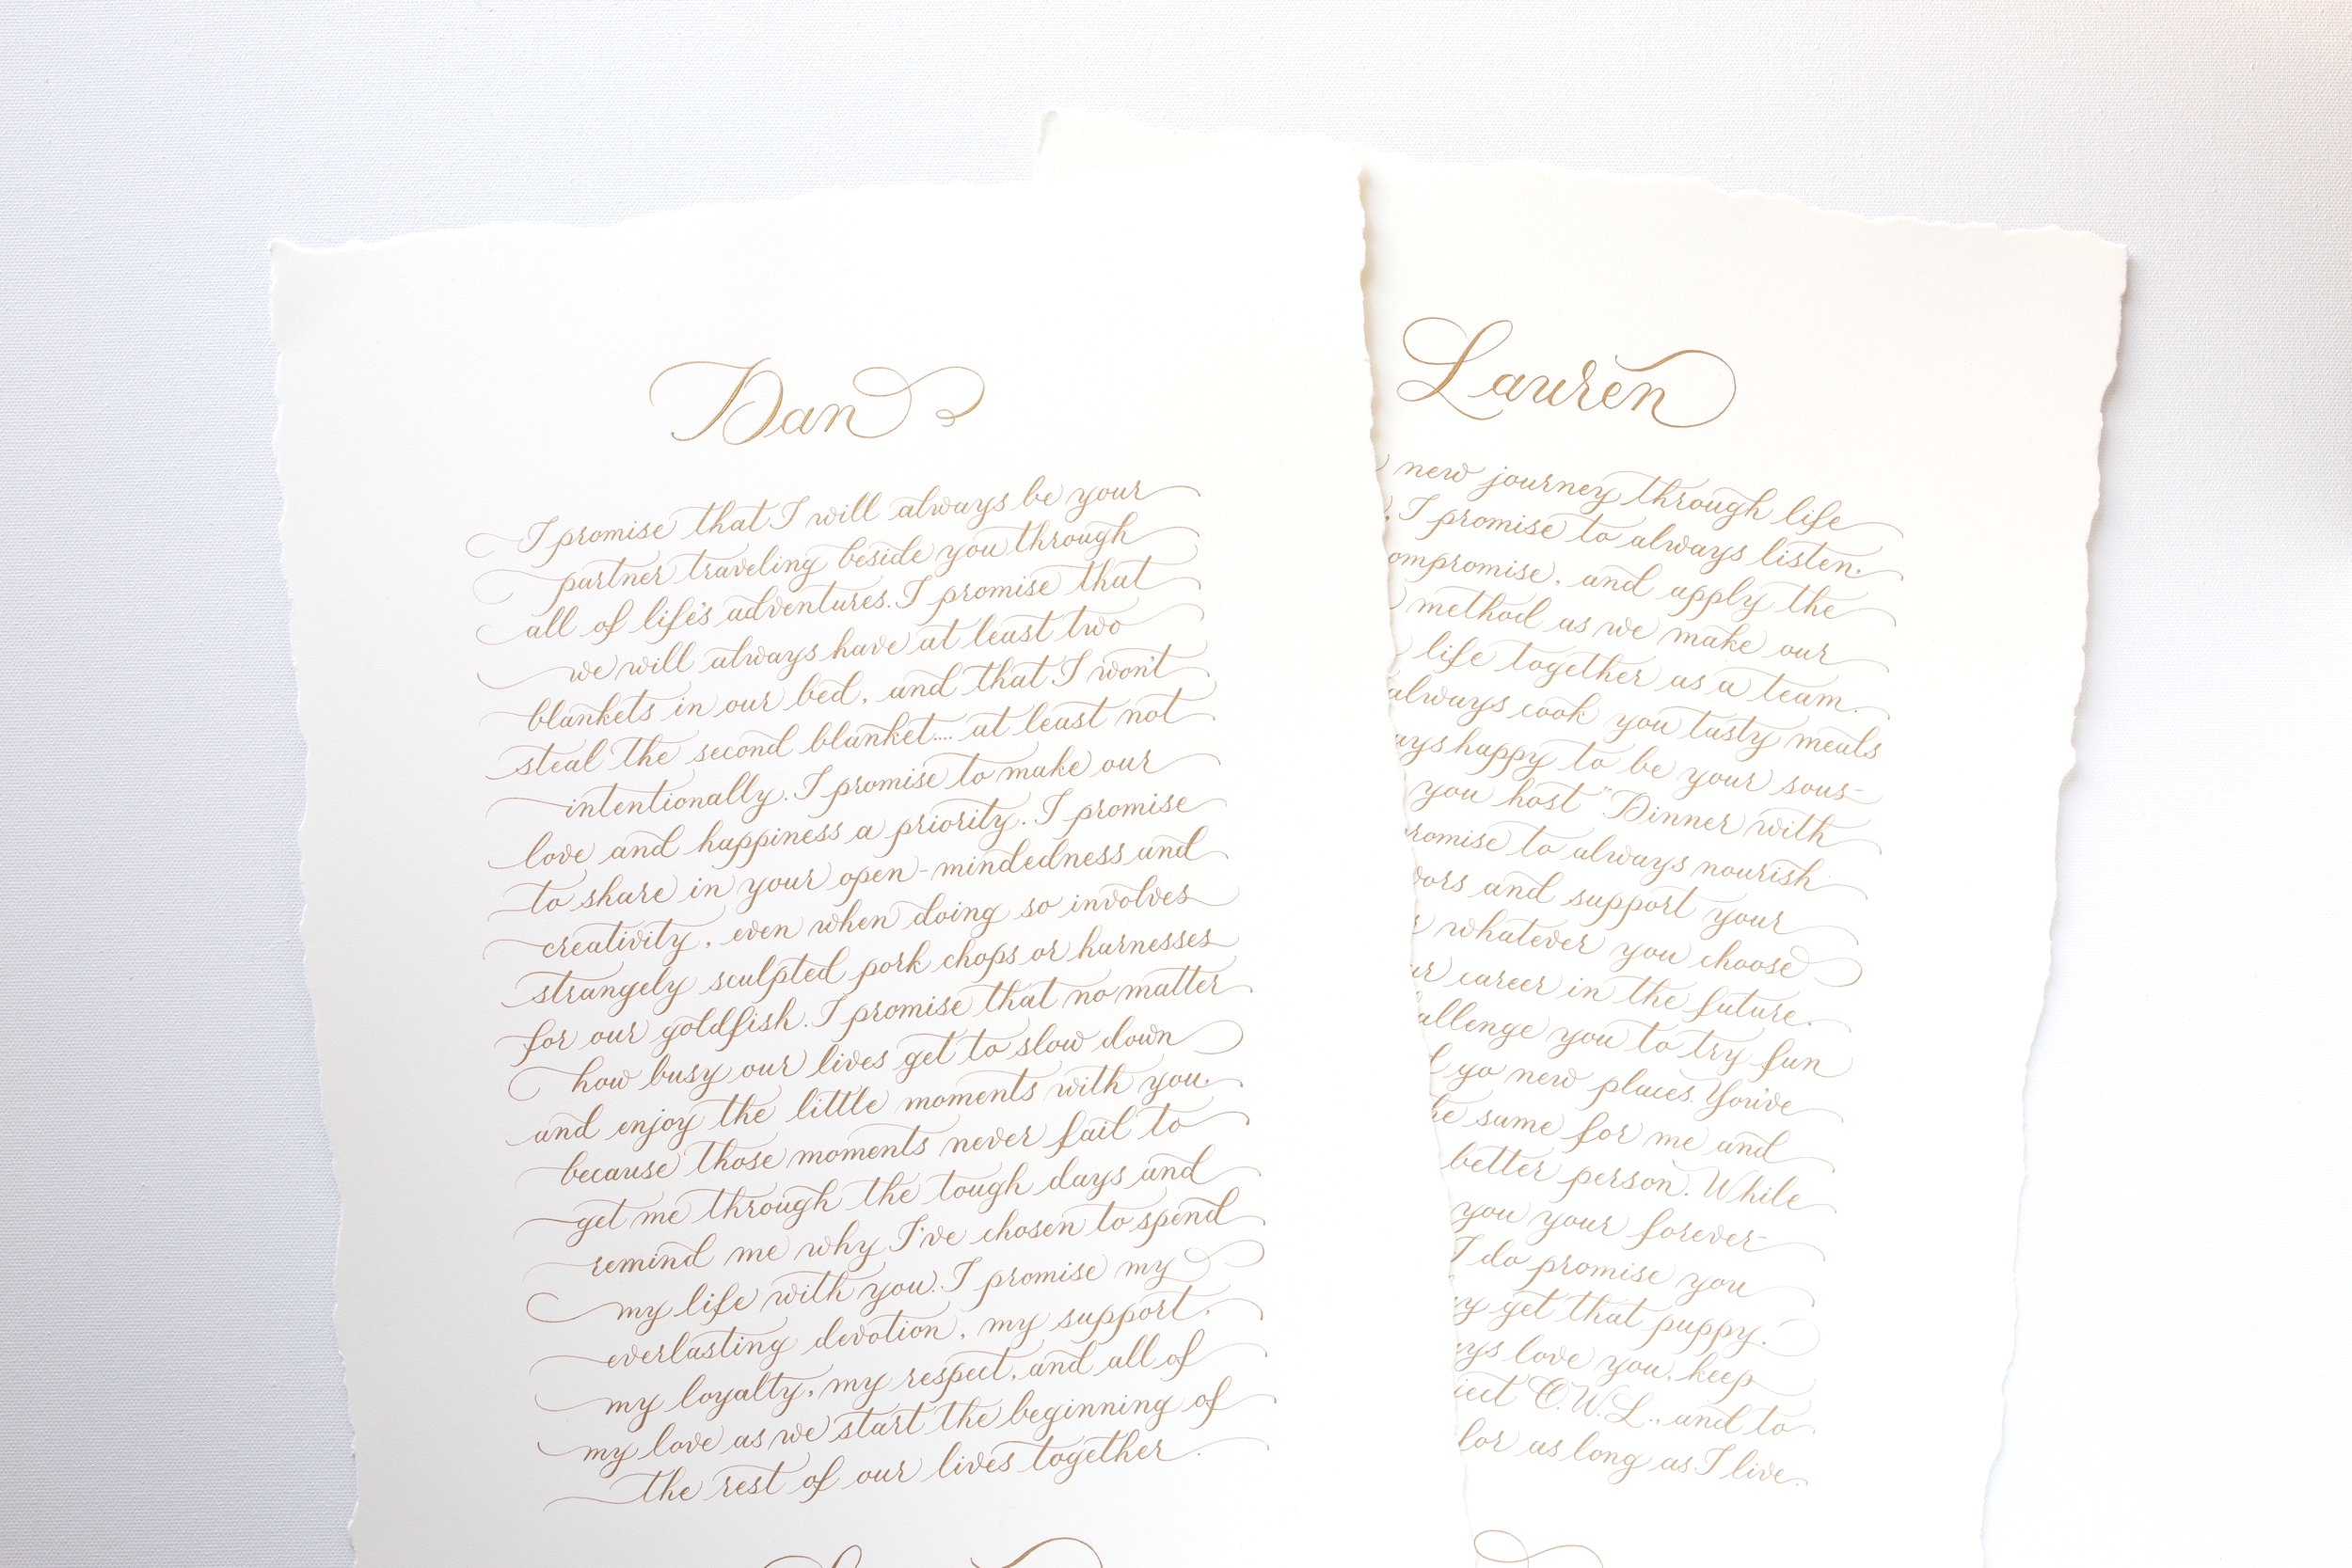 Dan
I promise that I will always be your
partner traveling beside you through
all of life's adventures. I promise that
we will always have at least two
blankets in our bed, and that I won't
steal the second blanket.... at least not
intentionally. I promise to make our
love and happiness a priority. I promise
to share in your open-mindedness and
creativity, even when doing so involves
strangely sculpted pork chops or harnesses
for our goldfish. I promise that no matter
how busy our lives get to slow down
and enjoy the little moments with you,
because those moments never fail to
get me through the tough days and
remind me why I've chosen to spend
my life with you. I promise my
everlasting devotion, my support,
my loyalty, my respect, and all of
my love as we start the beginning of
the rest of our lives together.
Lauren
new journey through life
, I promise to always listen,
ompromise, and apply the
method as we make our
life together as a team.
always cook you tasty meals
ays happy to be your sous-
you host "Dinner with
romise to always nourish
ors and support your
whatever you choose
ur career in the future.
allenge you to try fun
go new places. You've
he same for me and
better person. While
you your forever-
I do promise you
y get that puppy.
ys love you, keep
ject O.W.L., and to
for as long as I live.